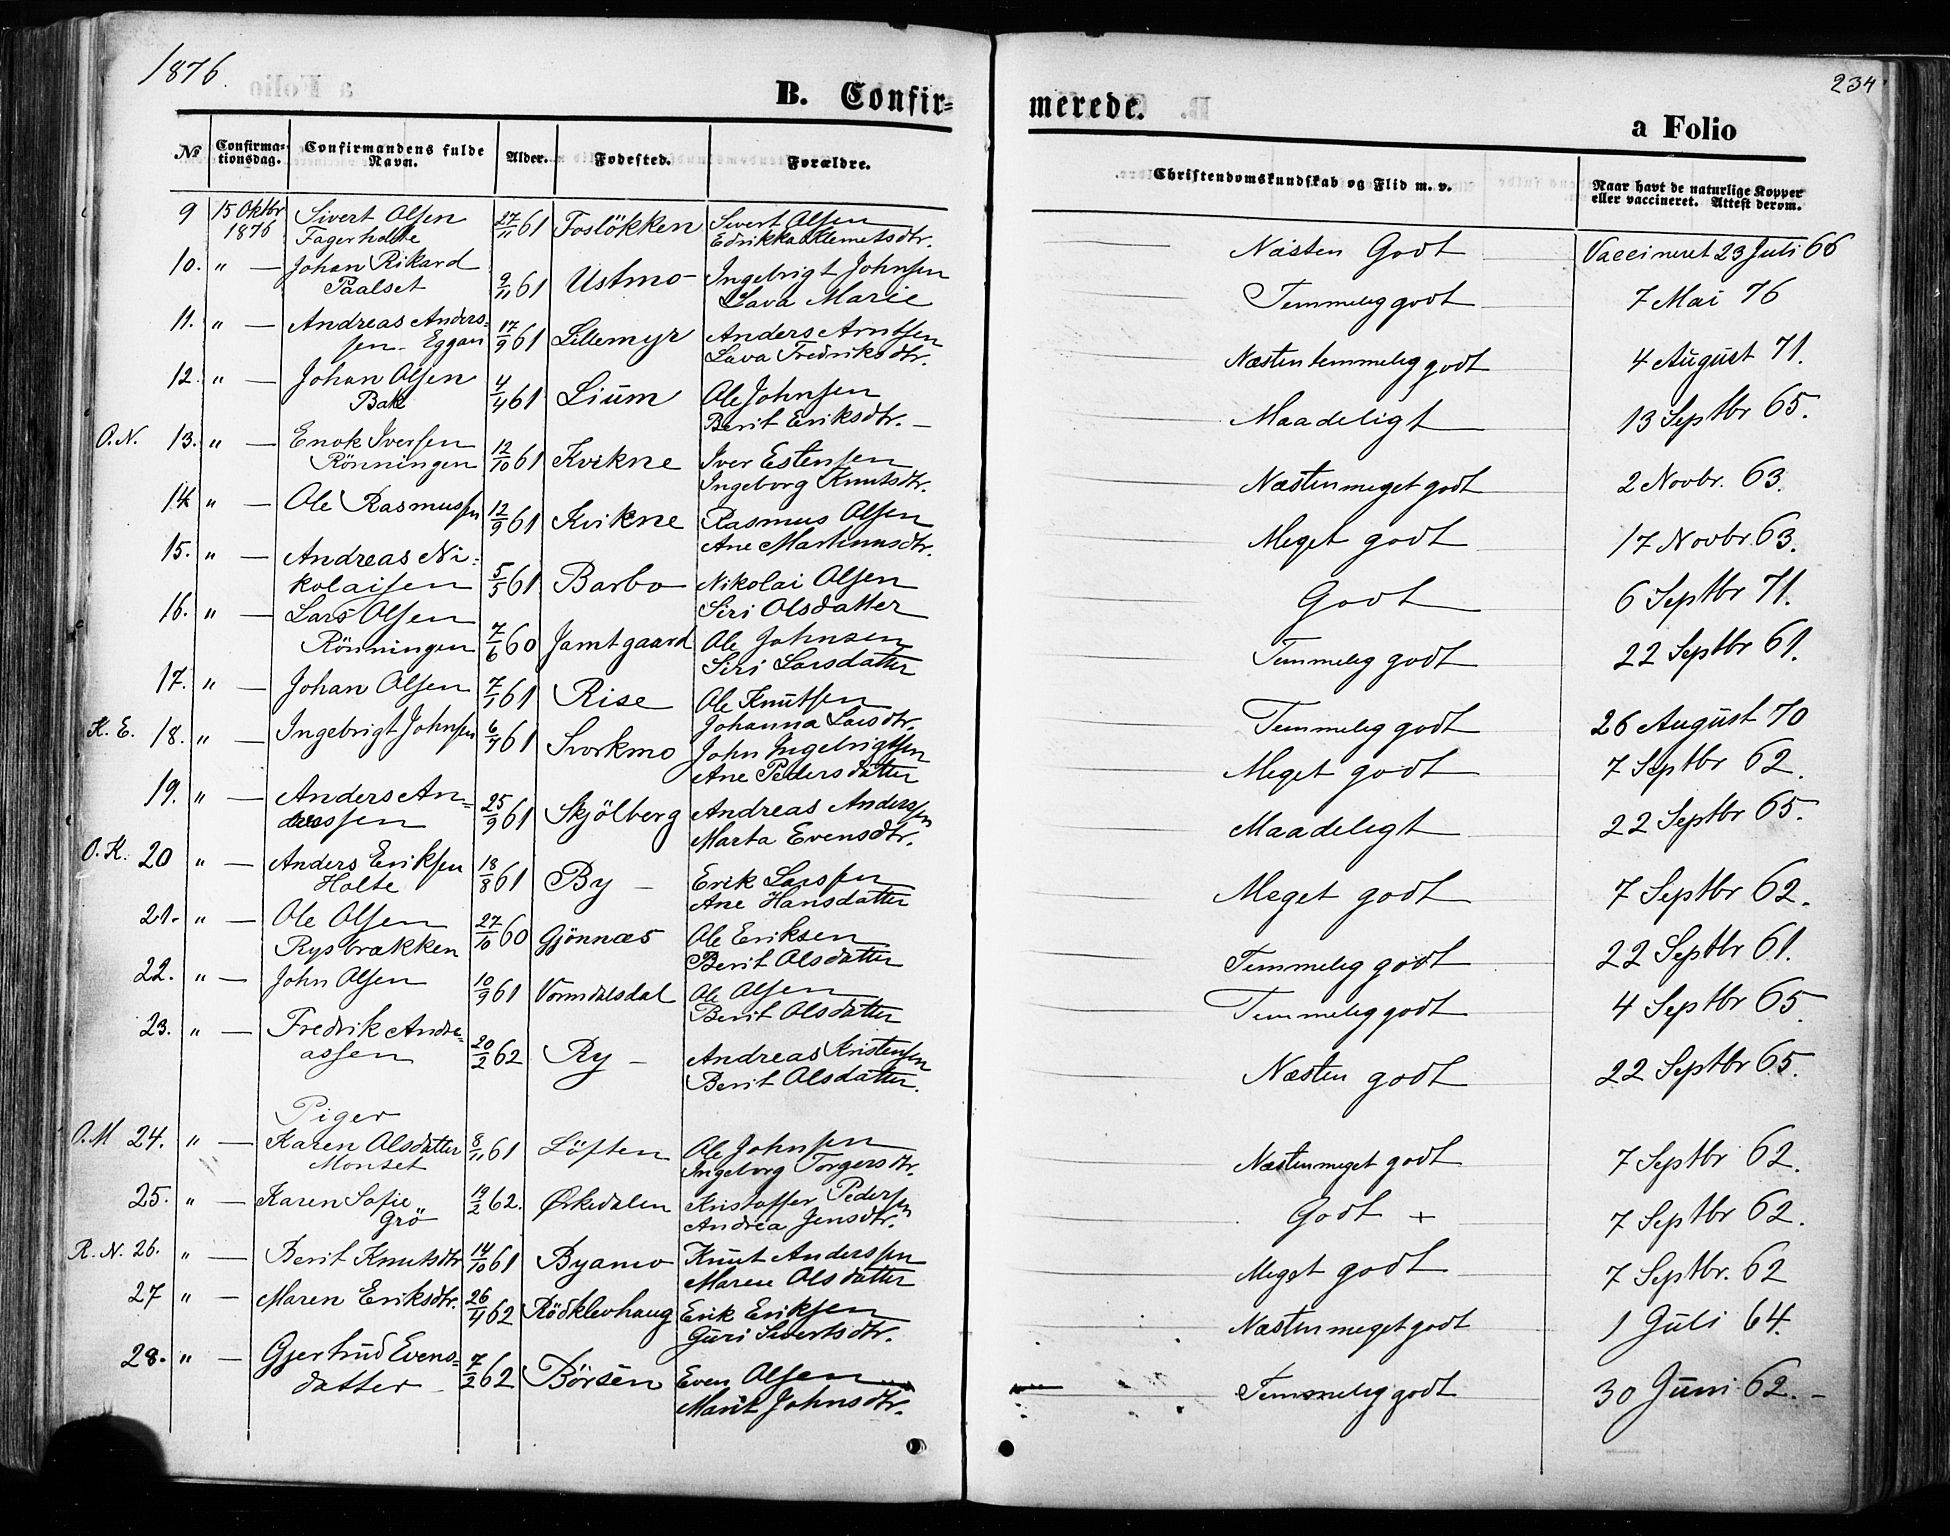 1876.
234
B. Confirmerede.
a Folio
No | Confirmationsdag. | Confirmandens fulde Navn. | Alder. | Fødested. | Forældre. | Christendomskundskab og Flid m. v. | Naar havt de naturlige Kopper eller vaccineret. Attest derom.
9 | 15 Oktbr 1876 | Sivert Olsen Fagerholte | 27/11 61 | Foslökken | Sivert Olsen Edrikka Klemetsdtr. | Næsten Godt | Vaccineret 23 Juli 66
10. | " — | Johan Rikard Paalset | 9/11 61 | Ustmo | Ingebrigt Johnsen Lava Marie | Temmelig godt | 7 Mai 76
11. | " — | Andreas Anderssen Eggan | 17/9 61 | Lillemyr | Anders Arntsen Lava Fredriksdtr. | Næsten temmelig godt | 4 August 71.
12. | " — | Johan Olsen Bak | 4/4 61 | Lium | Ole Johnsen Berit Eriksdtr. — | Maadeligt | 13 Septbr 65.
O. N. 13. | " — | Enok Iversen Rönningen | 12/10 61 | Kvikne | Iver Estensen Ingeborg Knutsdtr. | Næsten meget godt | 2 Novbr. 63.
14 | " — | Ole Rasmussen | 12/9 61 | Kvikne | Rasmus Olsen Ane Martinusdtr. | Meget godt | 17 Novbr. 63.
15. | " — | Andreas Nikolaisen | 5/5 61 | Barbo | Nikolai Olsen Siri Olsdatter | Godt | 6 Septbr 71.
16. | " — | Lars Olsen Rönningen | 7/6 60 | Jamtgaard | Ole Johnsen Siri Larsdatter | Temmelig godt | 22 Septbr 61.
17. | " — | Johan Olsen | 7/1 61 | Rise | Ole Knutsen Johanna Larsdtr. | Temmelig godt | 26 August 70
K. E. 18. | " — | Ingebrigt Johnsen | 6/4 61 | Svorkmo | John Ingebrigtsen Ane Pedersdatter | Meget godt | 7 Septbr 62.
19. | " — | Anders Anderssen | 25/9 61 | Skjölberg | Andreas Anderssen Marta Evensdtr. | Maadeligt | 22 Septbr 65.
O. K. 20 | " — | Anders Eriksen Holte | 18/8 61 | By — | Erik Larssen Ane Hansdatter | Meget godt | 7 Septbr 62.
21. | " — | Ole Olsen Rysbrækken | 27/10 60 | Gjönnæs | Ole Eriksen Berit Olsdatter | Temmelig godt | 22 Septbr 61.
22. | " — | John Olsen | 10/9 61 | Vormdalsdal | Ole Olsen Berit Olsdatter | Temmelig godt | 4 Septbr 65.
23. | " — | Fredrik Andreassen | 20/2 62 | Ry — | Andreas Kristensen Berit Olsdatter. | Næsten godt | 22 Septbr 65.
Piger
O. M 24. | " — | Karen Olsdatter Monset | 8/11 61 | Löften | Ole Johnsen Ingeborg Torgersdtr. | Næsten meget godt | 7 Septbr 62.
25. | " — | Karen Sofie Grö | 19/2 62. | Ørkedalen | Kristoffer Pedersen Andrea Jensdtr. | Godt + | 7 Septbr 62.
R. N. 26. | " — | Berit Knutsdtr | 14/10 61 | Byamo | Knut Anderssen Maren Olsdatter | Meget godt | 7 Septbr. 62
27 | " — | Maren Eriksdtr. | 26/4 62 | Rödklevhaug | Erik Eriksen Guri Sivertsdtr. | Næsten meget godt | 1 Juli 64.
28. | " — | Gjertrud Evensdatter | 7/2 62 | Börsen | Even Olsen Marit Johnsdtr. | Temmelig godt | 30 Juni 62. —